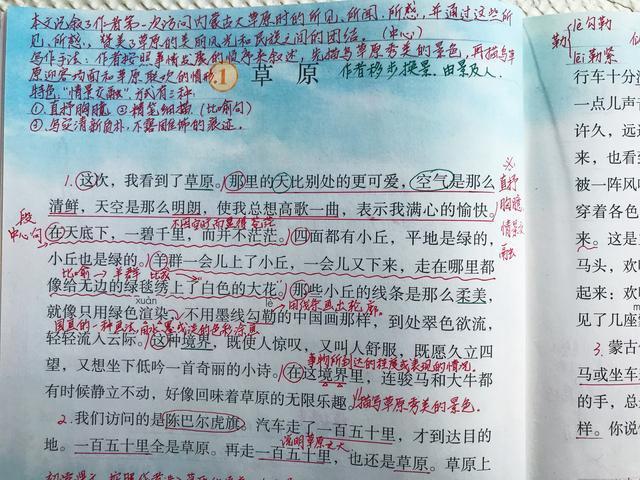 本文记叙了作者第一次访问内蒙古大草原时的所见、所闻、所感,并通过这些所
见、所感,赞美了草原的美丽风光和民族之间的团结。(中心)
写作手法:作者按照事情发展的顺序来叙述,先描写草原秀美的景色,再描写草
原迎客场面和草原联欢的情形。
作者移步换景,由景及人。
特色:"情景交融"方式有三种.
①直抒胸臆 ②精笔细描(比喻句)
1 草原
1.这次,我看到了草原。那里的天比别处的更可爱,空气是那么
清鲜,天空是那么明朗,使我总想高歌一曲,表示我满心的愉快。
※直抒胸臆,情景交融
段中心句
在天底下,一碧千里,而并不茫茫。四面都有小丘,平地是绿的,
小丘也是绿的。羊群一会儿上了小丘,一会儿又下来,走在哪里都
比喻→羊群 比较
像给无边的绿毯绣上了白色的大花。那些小丘的线条是那么柔美,
xuàn
lè
用线条画出轮廓。
就像只用绿色渲染,不用墨线勾勒的中国画那样,到处翠色欲流,
轻轻流入云际。这种境界,既使人惊叹,又叫人舒服,既愿久立四
事物所到达的程度或表现的情况。
望,又想坐下低吟一首奇丽的小诗。在这境界里,连骏马和大牛都
有时候静立不动,好像回味着草原的无限乐趣。描写草原秀美的景色.
2.我们访问的是陈巴尔虎旗。汽车走了一百五十里,才到达目的
说明草原之大
地。一百五十里全是草原。再走一百五十里,也还是草原。草原上
勒
lè勾勒
lēi勒紧
行车十分
一点儿声音
许久,远
来,也看到
被一阵风吼
穿着各色
来。这是
马头,欢
起来:欢
见了几座
3.蒙古
马或坐车
的手,总
样。你说